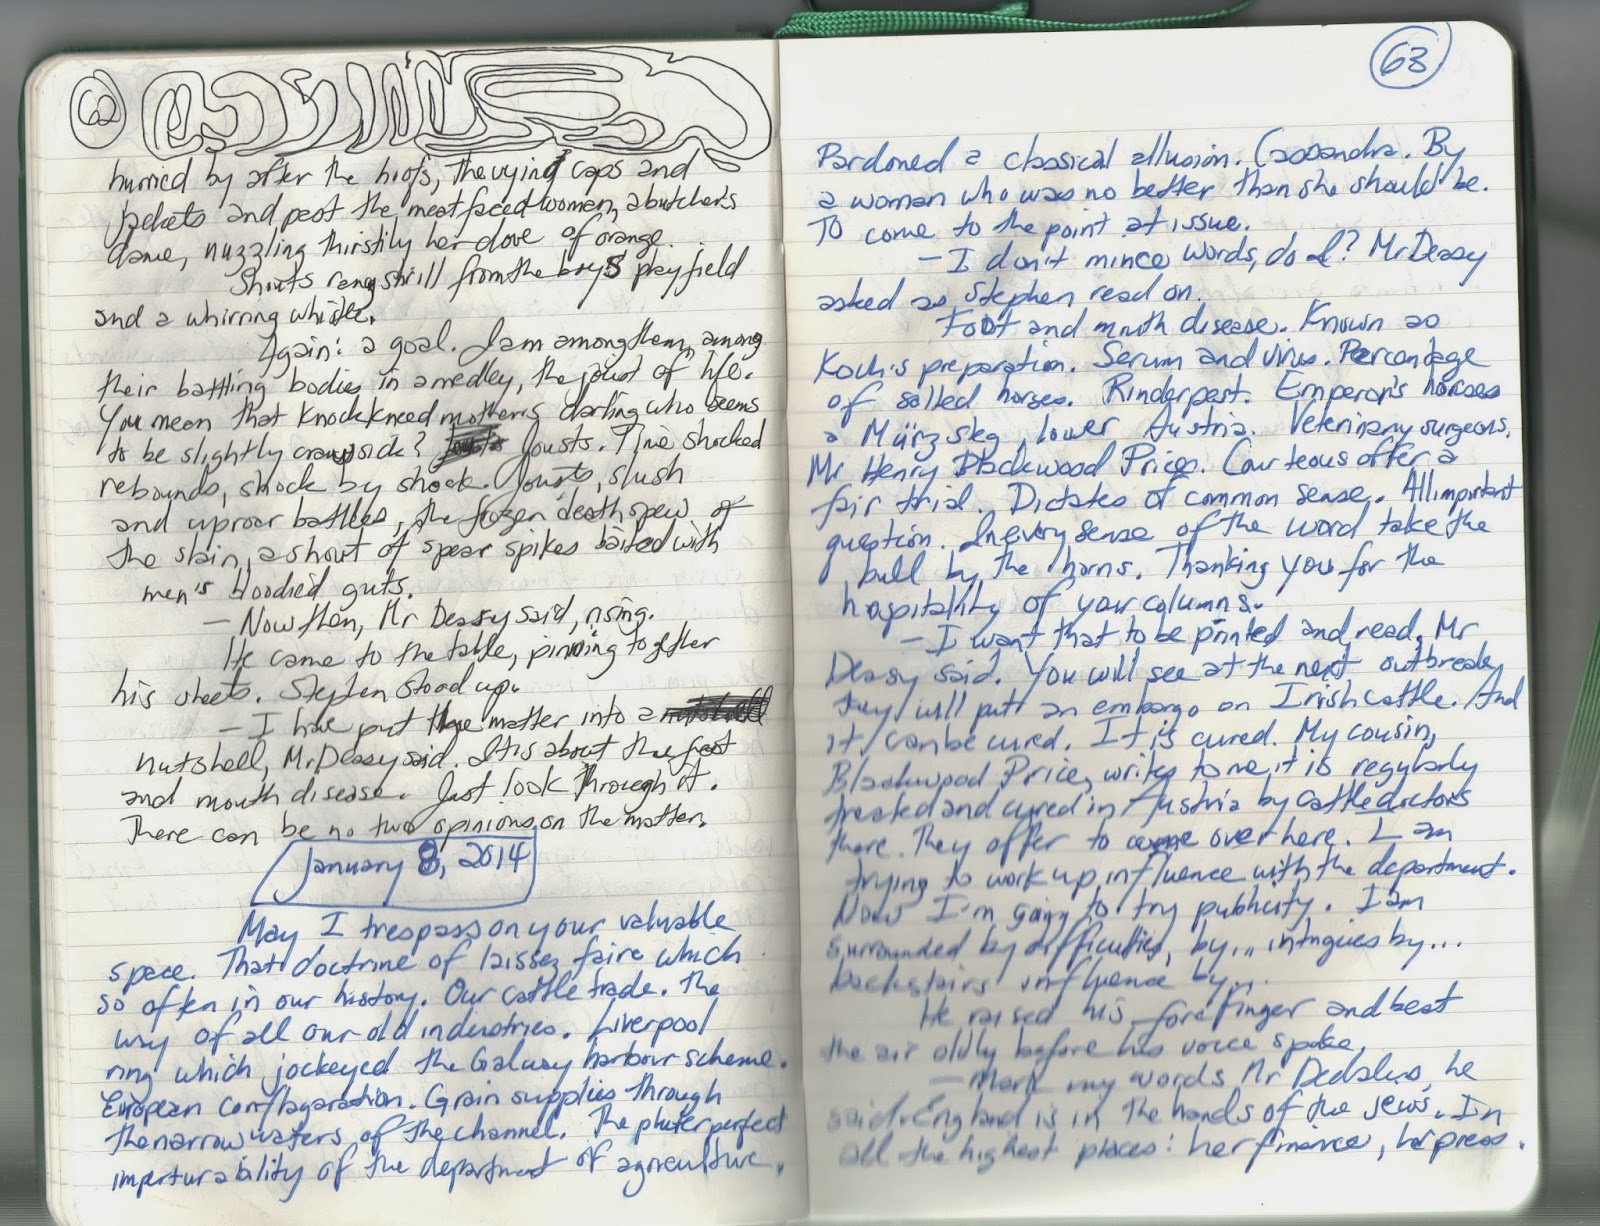 62
hurried by after the hoofs, the vying caps and
jackets and past the meatfaced woman, a butcher's
dame, nuzzling thirstily her clove of orange.
Shouts rang shrill from the boys playfield
and a whirring whistle.
Again: a goal. I am among them, among
their battling bodies in a medley, the joust of life.
You mean that knockkneed mother's darling who seems
to be slightly crawsick? Jousts. Time shocked
rebounds, shock by shock. Jousts, slush
and uproar battles, the frozen deathspew of
the slain, a shout of spear spikes baited with
men's bloodied guts.
— Now then, Mr Deasy said, rising.
He came to the table, pinning together
his sheets. Stephen stood up.
— I have put the matter into a
nutshell, Mr Deasy said. It is about the foot
and mouth disease. Just look through it.
There can be no two opinions on the matter.
January 8, 2014
May I trespass on your valuable
space. That doctrine of laissez faire which
so often in our history. Our cattle trade. The
way of all our old industries. Liverpool
ring which jockeyed the Galway harbour scheme.
European conflagaration. Grain supplies through
the narrow waters of the channel. The pluterperfect
imperturability of the department of agriculture.
63
Pardoned a classical allusion. Cassandra. By
a woman who was no better than she should be.
To come to the point at issue.
— I don't mince words, do I? Mr Deasy
asked as Stephen read on.
Foot and mouth disease. Known as
Koch's preparation. Serum and virus. Percentage
of salted horses. Rinderpest. Emperor's horses
a Mürzsteg, lower Austria. Veterinary surgeons.
Mr Henry Blackwood Price. Courteous offer a
fair trial. Dictates of common sense. Allimportant
question. In every sense of the word take the
bull by the horns. Thanking you for the
hospitality of your columns.
— I want that to be printed and read, Mr
Deasy said. You will see at the next outbreak
they will put an embargo on Irish cattle. And
it can be cured. It is cured. My cousin,
Blackwood Price, writes to me it is regularly
treated and cured in Austria by cattledoctors
there. They offer to come over here. I am
trying to work up influence with the department.
Now I'm going to try publicity. I am
surrounded by difficulties, by... intrigues by...
backstairs influence by...
He raised his forefinger and beat
the air oldly before his voice spoke.
— Mark my words Mr Dedalus, he
said. England is in the hands of the jews. In
all the highest places: her finance, her press.